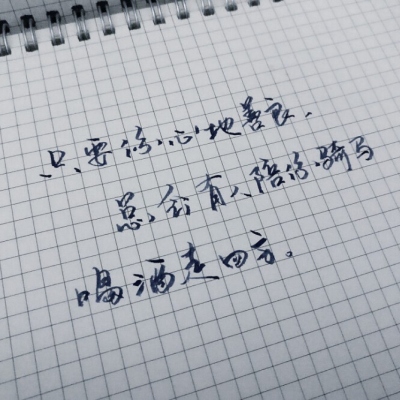 只要你心地善良，
总会有人陪你骑马
喝酒走四方。